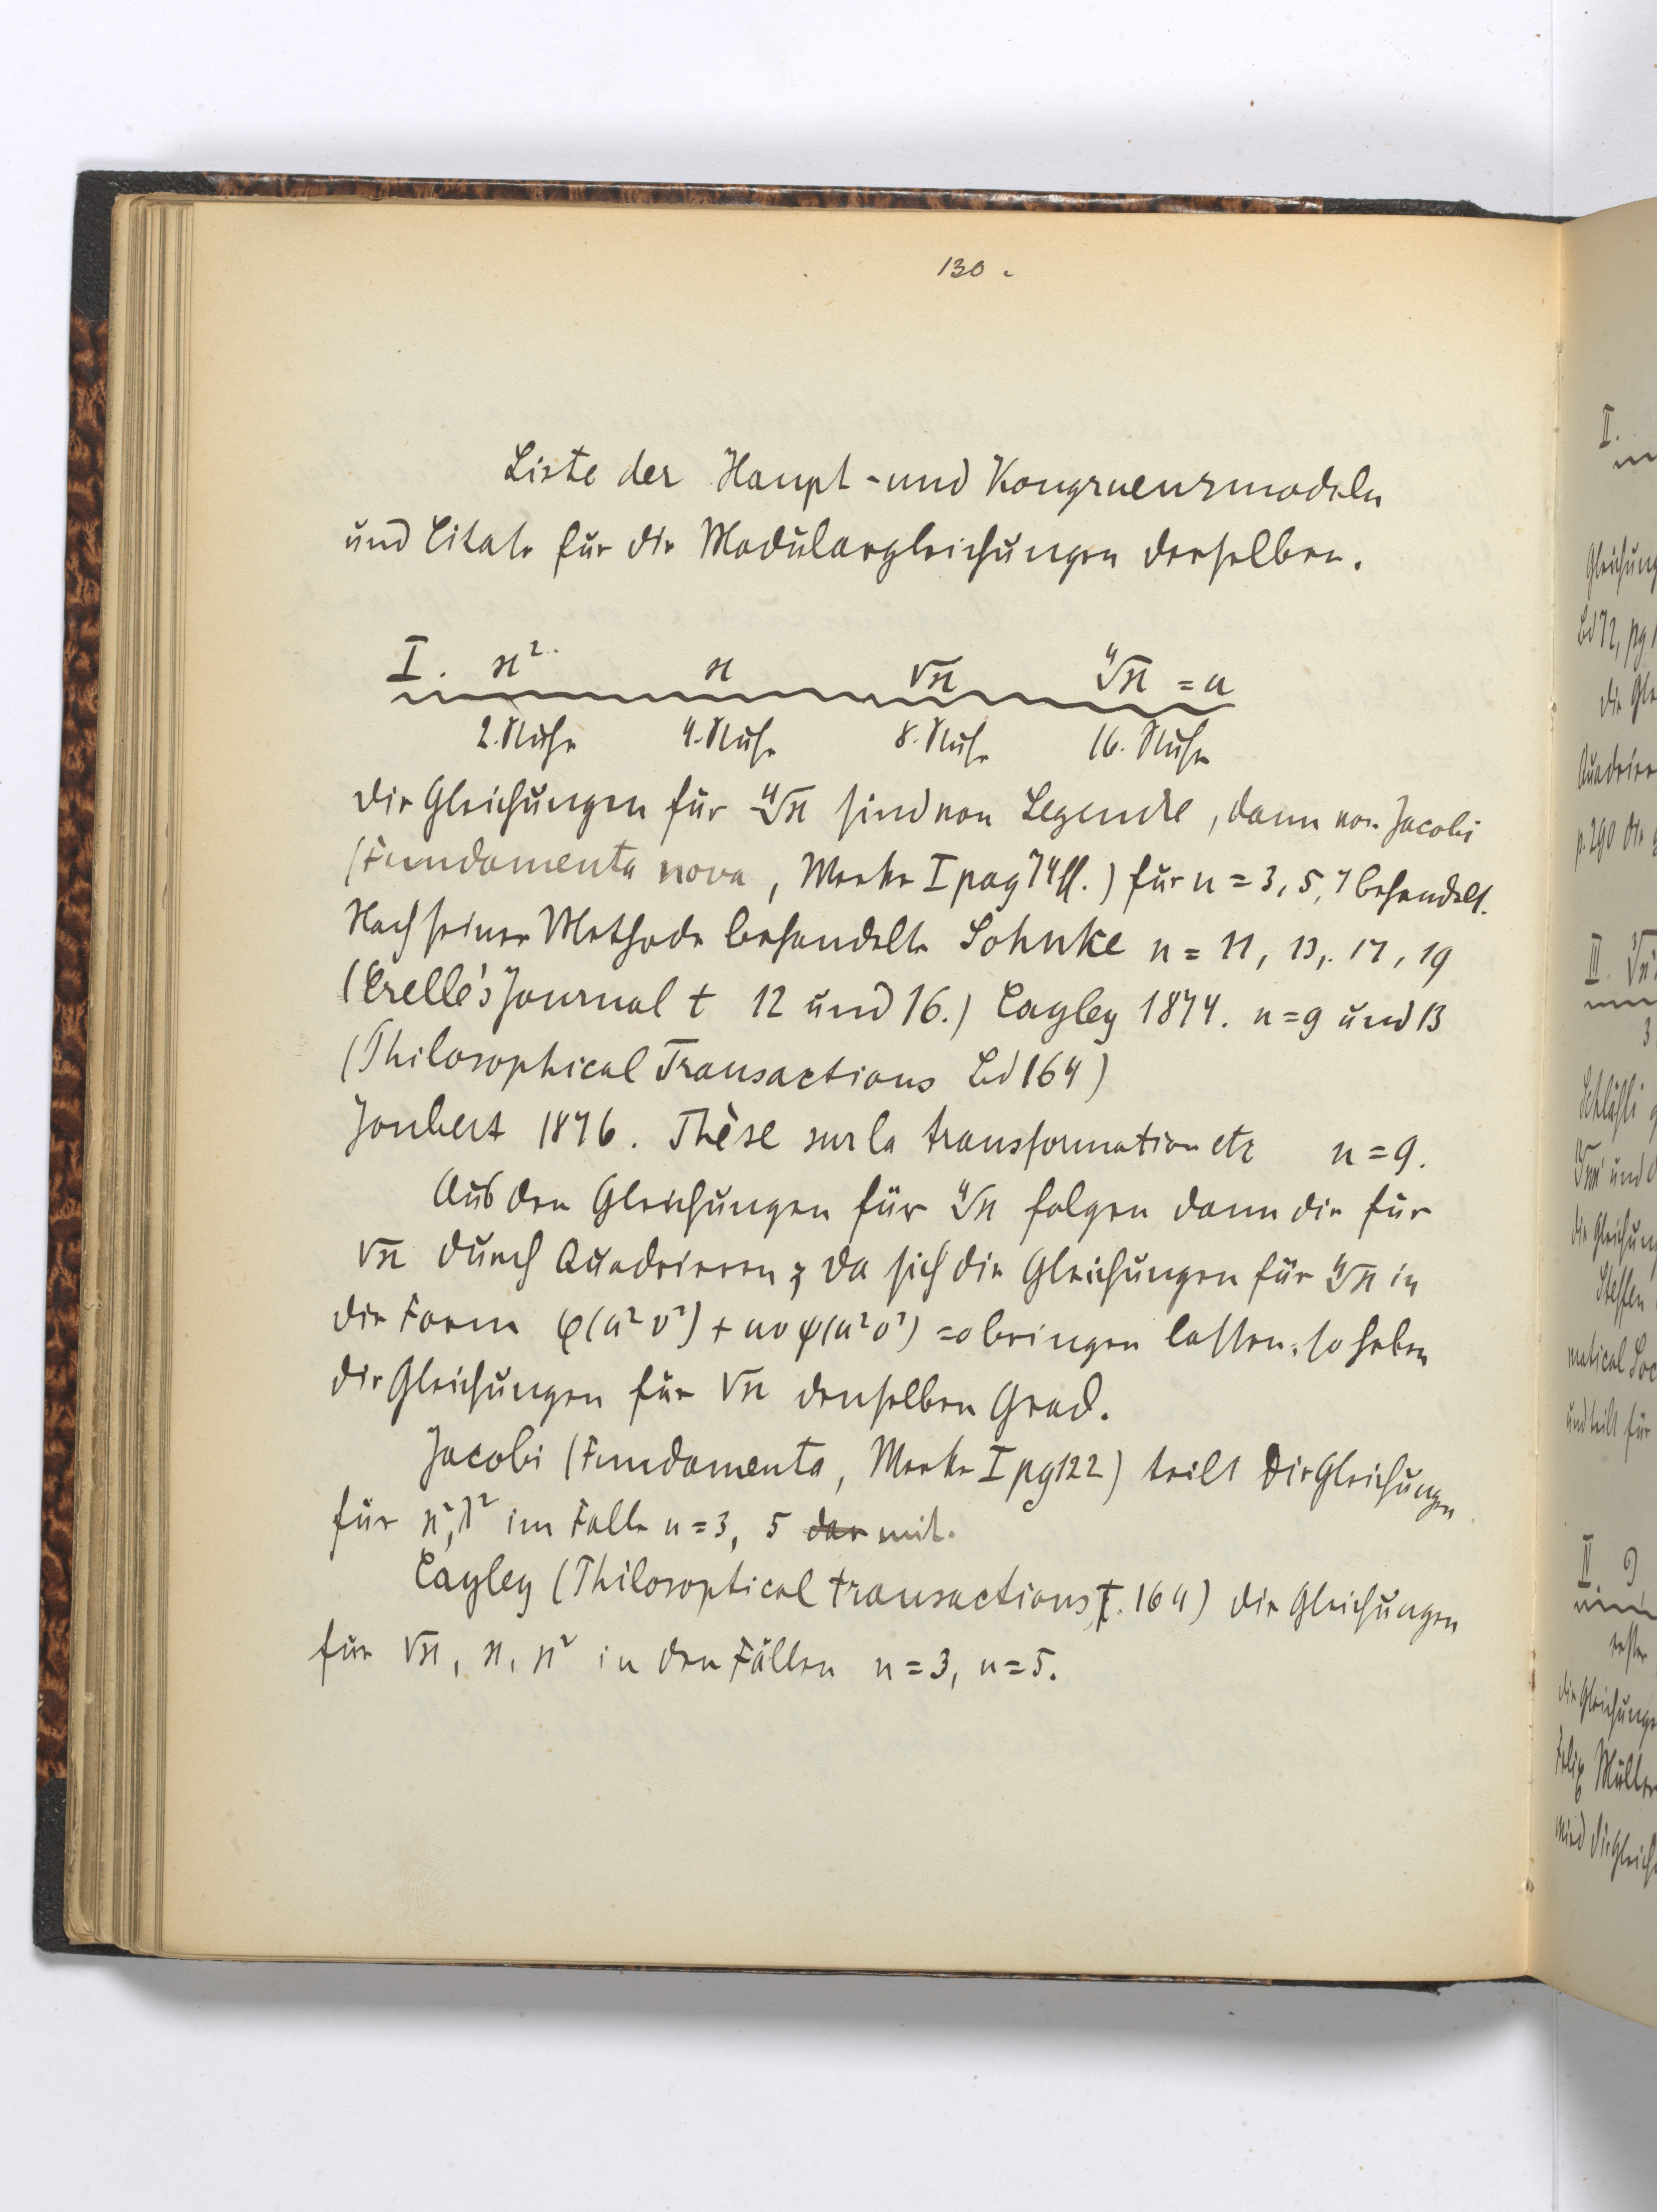 130.
Liste der Haupt- und Kongruenzmodeln
und Citate für die Modulargleichungen derselben.
I. ϰ² ϰ √ϰ ∜ϰ = u
2. Stufe 4. Stufe 8. Stufe 16. Stufe
Die Gleichungen für ∜ϰ sind von Legendre, dann von Jacobi
(Fundamenta nova, Werke I pag 74ff.) für n = 3, 5, 7 behandelt.
Nach seiner Methode behandelte Sohnke n = 11, 13, 17, 19
(Crelle's Journal t 12 und 16.) Cayley 1874. n = 9 und 13
(Philosophical Transactions Bd 164)
Joubert 1876. Thèse sur la transformation etc n = 9.
Aus den Gleichungen für ∜ϰ folgen dann die für
√ϰ durch Quadrieren; da sich die Gleichungen für ∜ϰ in
die Form φ(u² v²) + uv ψ(u² v²) = 0 bringen lassen, so haben
die Gleichungen für √ϰ denselben Grad.
Jacobi (Fundamenta, Werke I pg 122) teilt die Gleichungen
für ϰ², λ² im Falle n = 3, 5 mit.
Cayley (Philosoptical transactions, T. 164) die Gleichungen
für √ϰ, ϰ, ϰ² in den Fällen n = 3, n = 5.
II.
Gleichung
Bd 72, pg
die Gle
Quadrier
p. 290 die
III.
3
Schläfli
und
die Gleichun
Steffen
matical Soc
und teilt für
die Gleichunge
Felix Müller
wird die Gleich